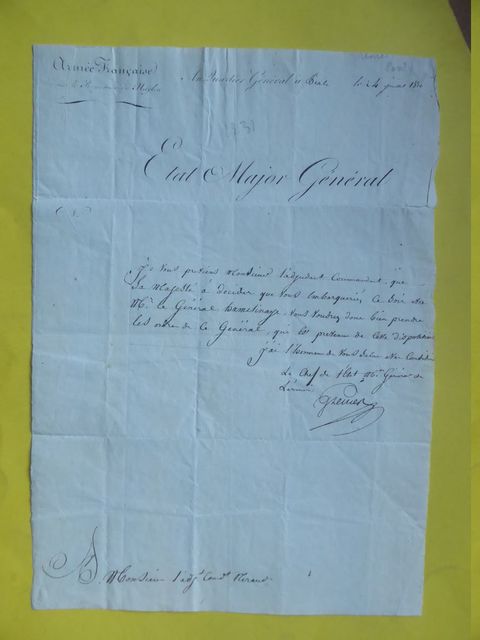 Armée Française
Au Quartier Général à le 24
1731
Etat Major Général
Je vous préviens Monsieur l'adjudant Commandant, que
Sa Majesté a décidé que vous embarqueriez ce soir avec
Mr. le Général vous voudrez donc bien prendre
les ordre de ce Général, qui est prévenu de cette disposition
j'ai l'honneur de vous saluer
Le Chef de l'Etat Mr. Général de
L'armée
Grenier
A Monsieur l'adjt. Comdt.